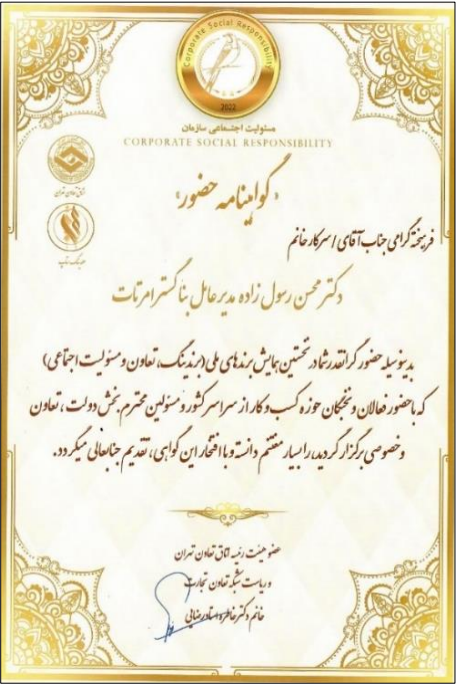 Corporate Social Responsibility
2022
مسئولیت اجتماعی سازمان
CORPORATE SOCIAL RESPONSIBILITY
اتاق تعاون تهران
«گواهینامه حضور»
فرهیخته گرامی جناب آقای / سرکار خانم
دکتر محسن رسول زاده مدیرعامل بنا گستر امرتات
بدینوسیله حضور گرانقدر شما در نخستین همایش برندهای ملی (برندینگ، تعاون و مسئولیت اجتماعی)
که با حضور فعالان و نخبگان حوزه کسب و کار از سراسر کشور و مسئولین محترم بخش دولت، تعاون
و خصوصی برگزار گردید، را بسیار مغتنم دانسته و با افتخار این گواهی، تقدیم جنابعالی میگردد.
عضو هیئت رئیسه اتاق تعاون تهران
و ریاست شبکه تعاون تجارت
خانم دکتر خاطره استادرضایی